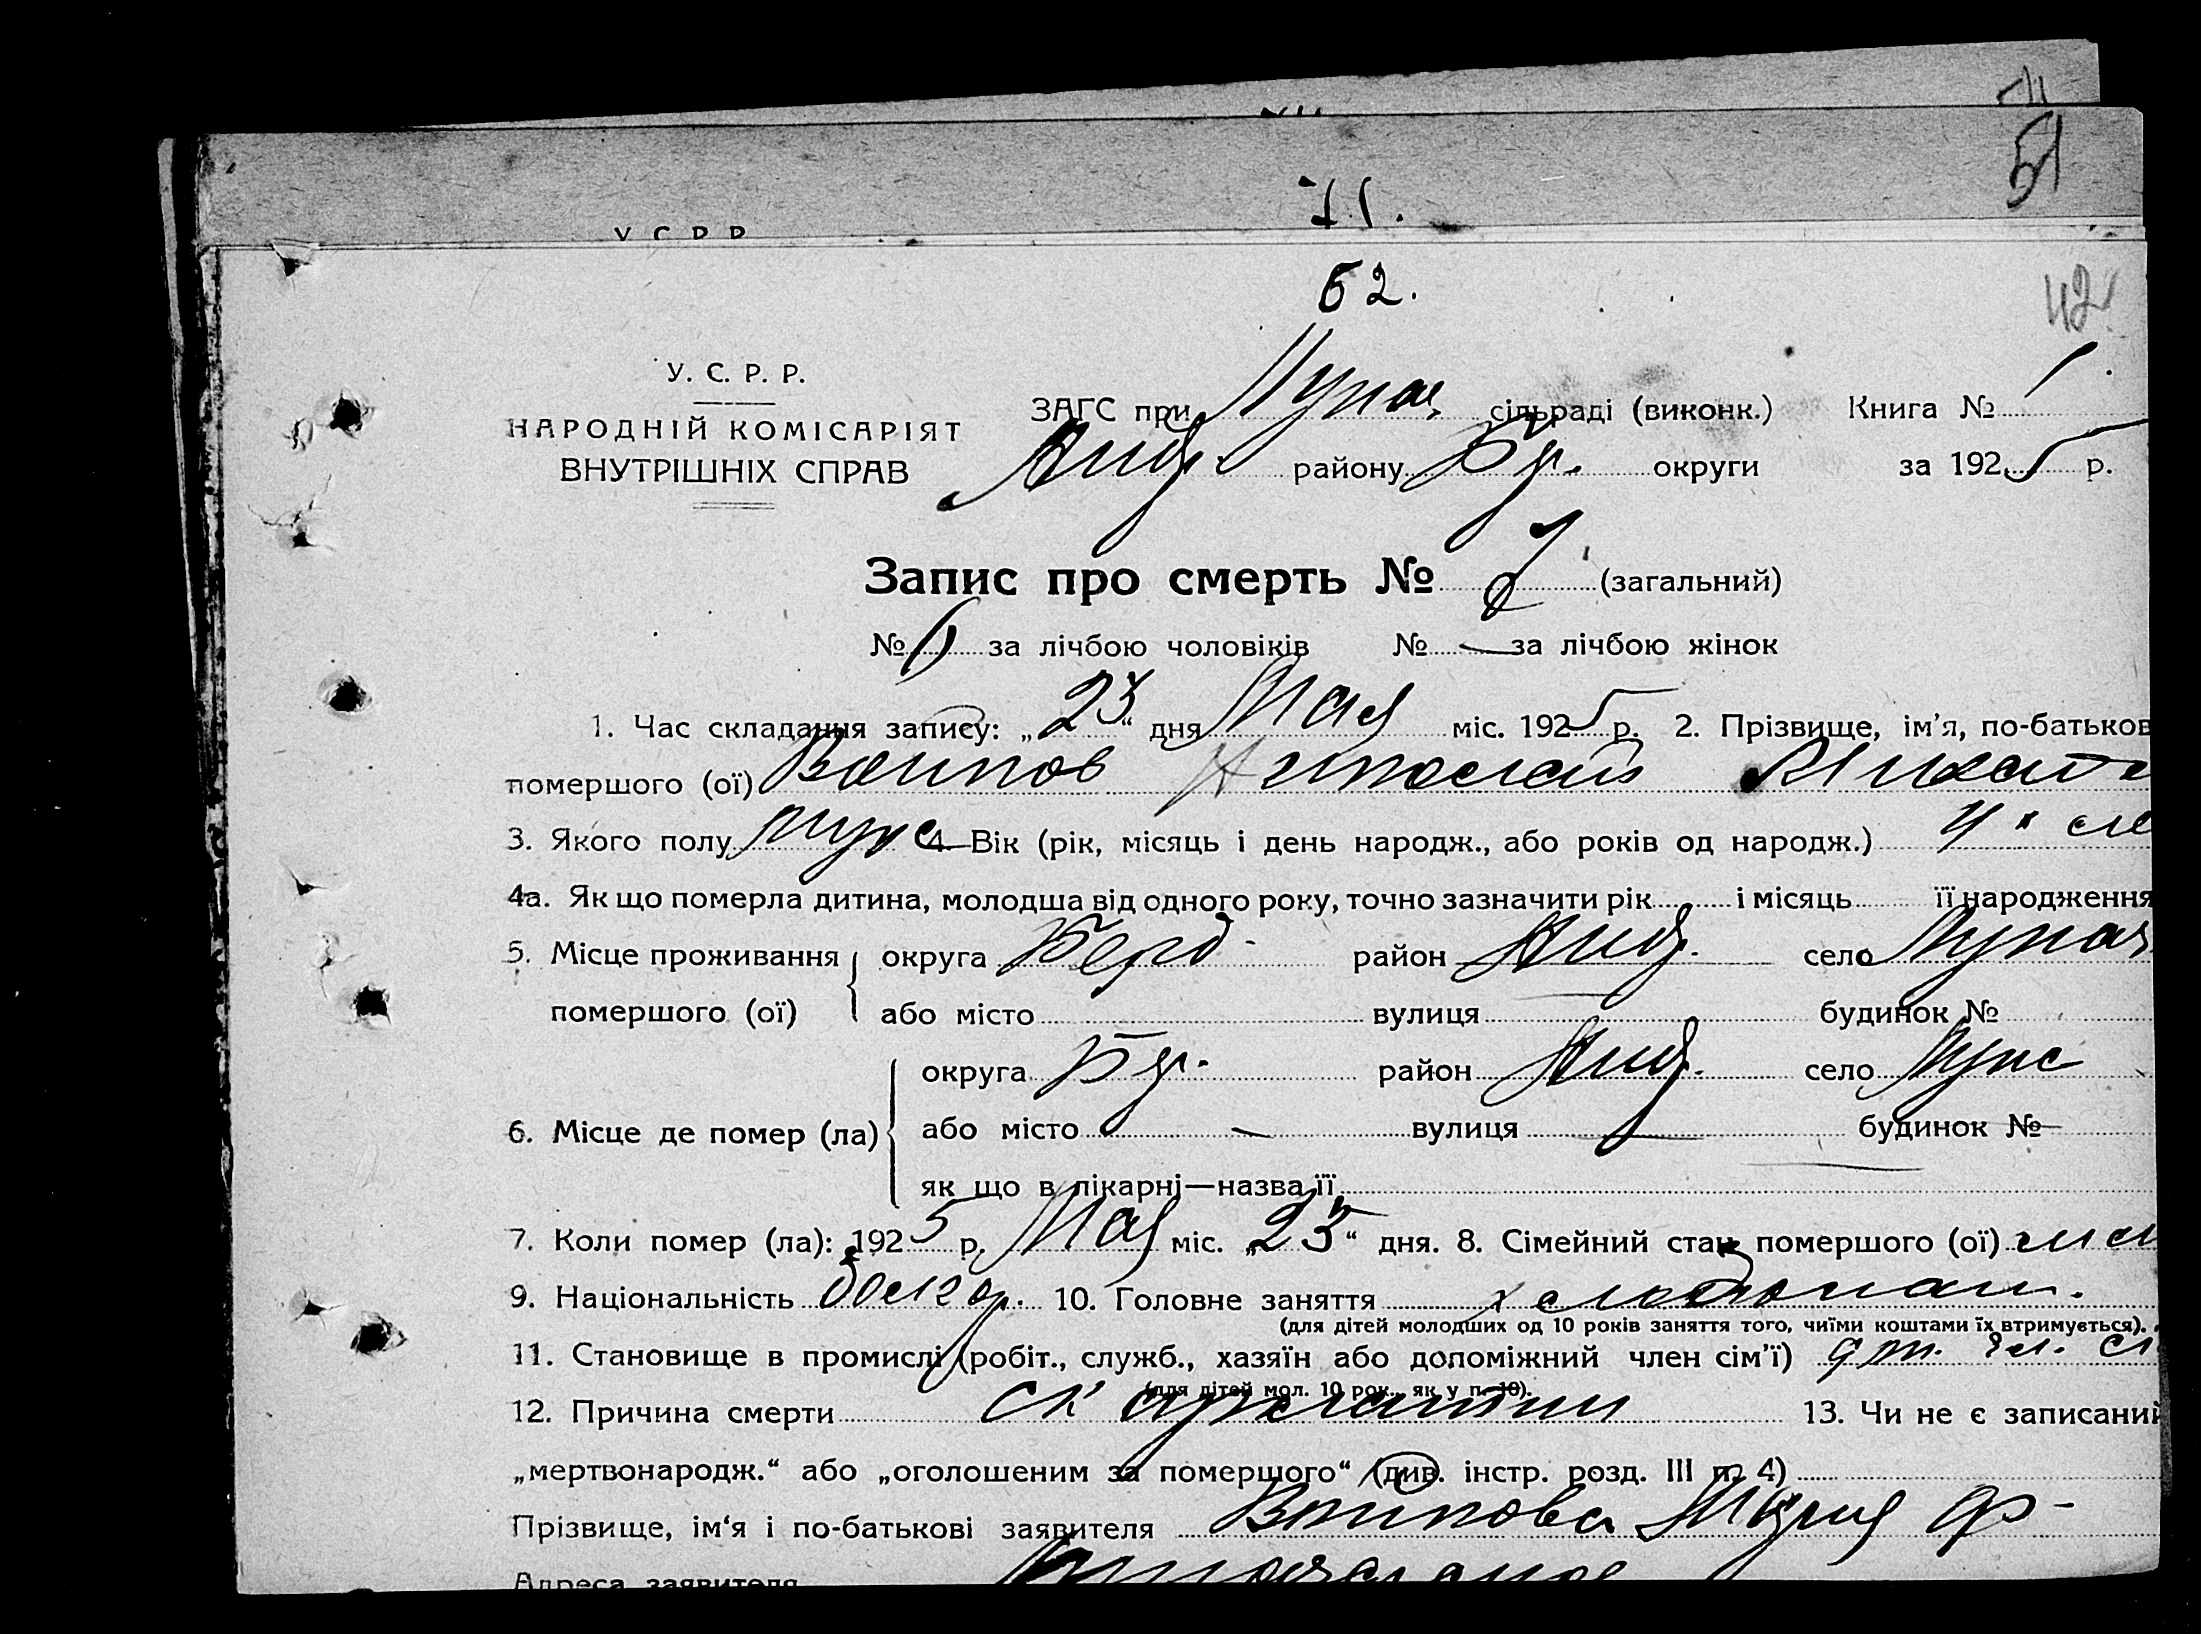 51
У С Р Р
71.
52.
42
У. С. Р. Р.
НАРОДНІЙ КОМІСАРІЯТ
ВНУТРІШНІХ СПРАВ
ЗАГС при Лупов. сільраді (виконк.) Книга № 1
району Бр. округи за 1925 р.
Запис про смерть № 7 (загальний)
№ 6 за лічбою чоловіків № — за лічбою жінок
1. Час складання запису: „23“ дня Мая міс. 1925 р. 2. Прізвище, ім’я, по-батькові
помершого (ої) Николай Михайл
3. Якого полу муж 4. Вік (рік, місяць і день народж., або років од народж.) 4х
4а. Як що померла дитина, молодша від одного року, точно зазначити рік і місяць її народження
5. Місце проживання округа Берд район село
помершого (ої) або місто вулиця будинок №
округа Бр. район село
6. Місце де помер (ла) або місто — вулиця — будинок №
як що в лікарні—назва її
7. Коли помер (ла): 1925 р. Мая міс. „23“ дня. 8. Сімейний стан помершого (ої)
9. Національність болгар. 10. Головне заняття хлебопаш.
(для дітей молодших од 10 років заняття того, чиїми коштами їх втримується).
11. Становище в промислі (робіт., служб., хазяїн або допоміжний член сім’ї)
(для дітей мол. 10 рок., як у п. 10).
12. Причина смерти скарлатини 13. Чи не є записаний
„мертвонародж.“ або „оголошеним за помершого“ (див. інстр. розд. III п. 4)
Прізвище, ім‘я і по-батькові заявителя Мария Ф
Адреса заявителя